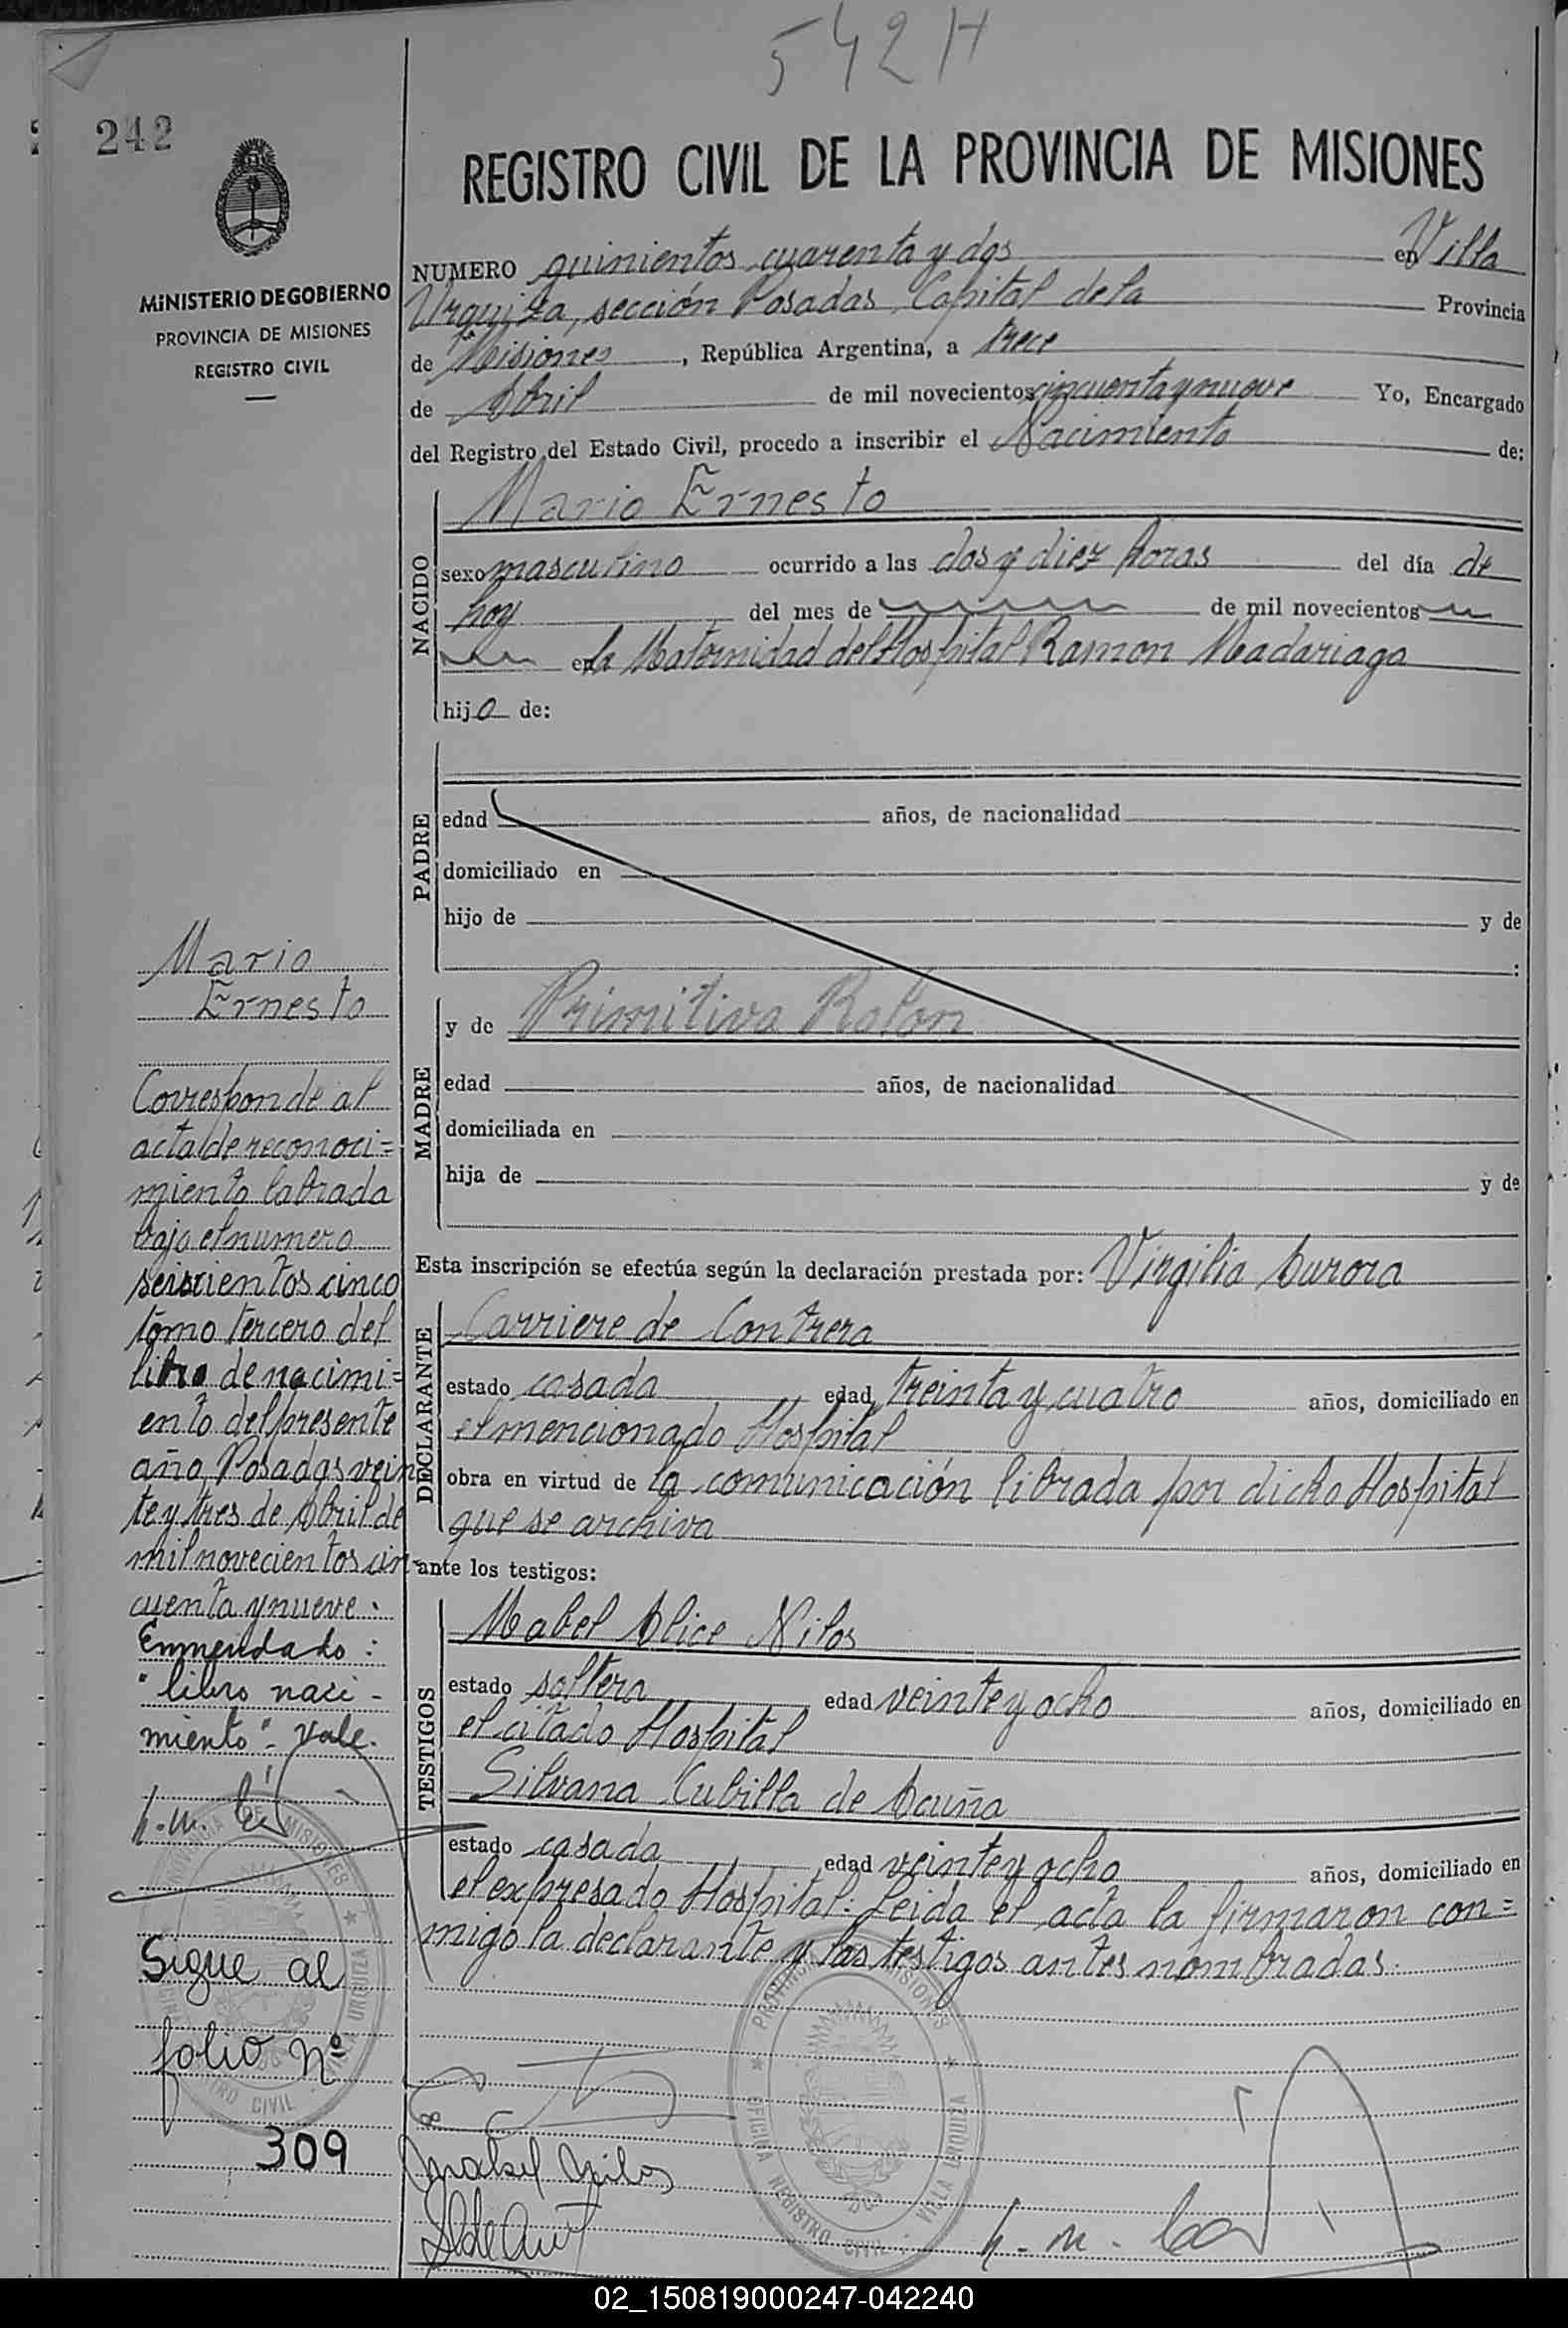 542 H
242
REGISTRO CIVIL DE LA PROVINCIA DE MISIONES
MINISTERIO DE GOBIERNO
PROVINCIA DE MISIONES
REGISTRO CIVIL
NUMERO quinientos cuarenta y dos en Villa
Urquiza, sección Posadas Capital de la Provincia
de Misiones, República Argentina, a trece
de Abril de mil novecientos cincuenta y nueve Yo, Encargado
del Registro del Estado Civil, procedo a inscribir el Nacimiento de:
NACIDO
Mario Ernesto
sexo masculino ocurrido a las dos y diez horas del día de
hoy del mes de de mil novecientos
en la Maternidad del Hospital Ramon Madariaga
hijo de:
PADRE
edad años, de nacionalidad
domiciliado en
hijo de y de
:
MADRE
y de Primitiva Rolon
edad años, de nacionalidad
domiciliada en
hija de y de
Esta inscripción se efectúa según la declaración prestada por: Virgilia Aurora
DECLARANTE
Carriere de Contrera
estado casada edad treinta y cuatro años, domiciliado en
el mencionado Hospital
obra en virtud de la comunicación librada por dicho Hospital
que se archiva
ante los testigos:
TESTIGOS
Mabel Alice Nilos
estado soltera edad veinte y ocho años, domiciliado en
el citado Hospital
Silvana Cubilla de Acuña
estado casada edad veinte y ocho años, domiciliado en
el expresado Hospital: Leida el acta la firmaron con=
migo la declarante y las testigos antes nombradas.
Mario
Ernesto
Corresponde al
acta de reconoci=
miento labrada
bajo el numero
seiscientos cinco
tomo tercero del
libro de nacimi=
ento del presente
año, Posadas vein
te y tres de Abril de
mil novecientos cin-
cuenta y nueve.
Enmendado:
"libro naci-
miento"- vale.
Sigue al
folio Nº
309
PROVINCIA DE MISIONES
OFICINA REGISTRO CIVIL - VILLA URQUIZA
Mabel Nilos
PROVINCIA DE MISIONES
OFICINA REGISTRO CIVIL - VILLA URQUIZA
02_150819000247-042240